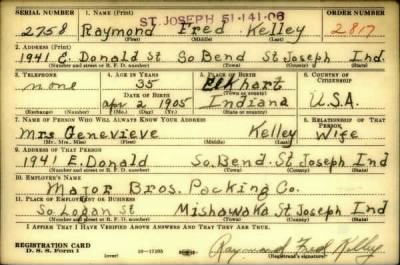 SERIAL NUMBER 1. NAME (Print) ORDER NUMBER
ST. JOSEPH 51-141-06
2758 Raymond Fred Kelley 2817
(First) (Middle) (Last)
2. ADDRESS (Print)
1941 E. Donald St So Bend St Joseph Ind.
(Number and street or R. F. D. number) (Town) (County) (State)
3. TELEPHONE 4. AGE IN YEARS 5. PLACE OF BIRTH 6. COUNTRY OF CITIZENSHIP
none 35 Elkhart
DATE OF BIRTH (Town or county)
Apr 2 1905 Indiana U.S.A.
(Exchange) (Number) (Mo.) (Day) (Yr.) (State or country)
7. NAME OF PERSON WHO WILL ALWAYS KNOW YOUR ADDRESS 8. RELATIONSHIP OF THAT PERSON
Mrs Genevieve Kelley Wife
(Mr., Mrs., Miss) (First) (Middle) (Last)
9. ADDRESS OF THAT PERSON
1941 E. Donald So. Bend. St. Joseph Ind
(Number and street or R. F. D. number) (Town) (County) (State)
10. EMPLOYER'S NAME
Major Bros. Packing Co.
11. PLACE OF EMPLOYMENT OR BUSINESS
So Logan St Mishawaka St Joseph Ind
(Number and street or R. F. D. number) (Town) (County) (State)
I AFFIRM THAT I HAVE VERIFIED ABOVE ANSWERS AND THAT THEY ARE TRUE.
REGISTRATION CARD
D. S. S. Form 1 (over) 16—17105 Raymond Fred Kelley
(Registrant's signature)